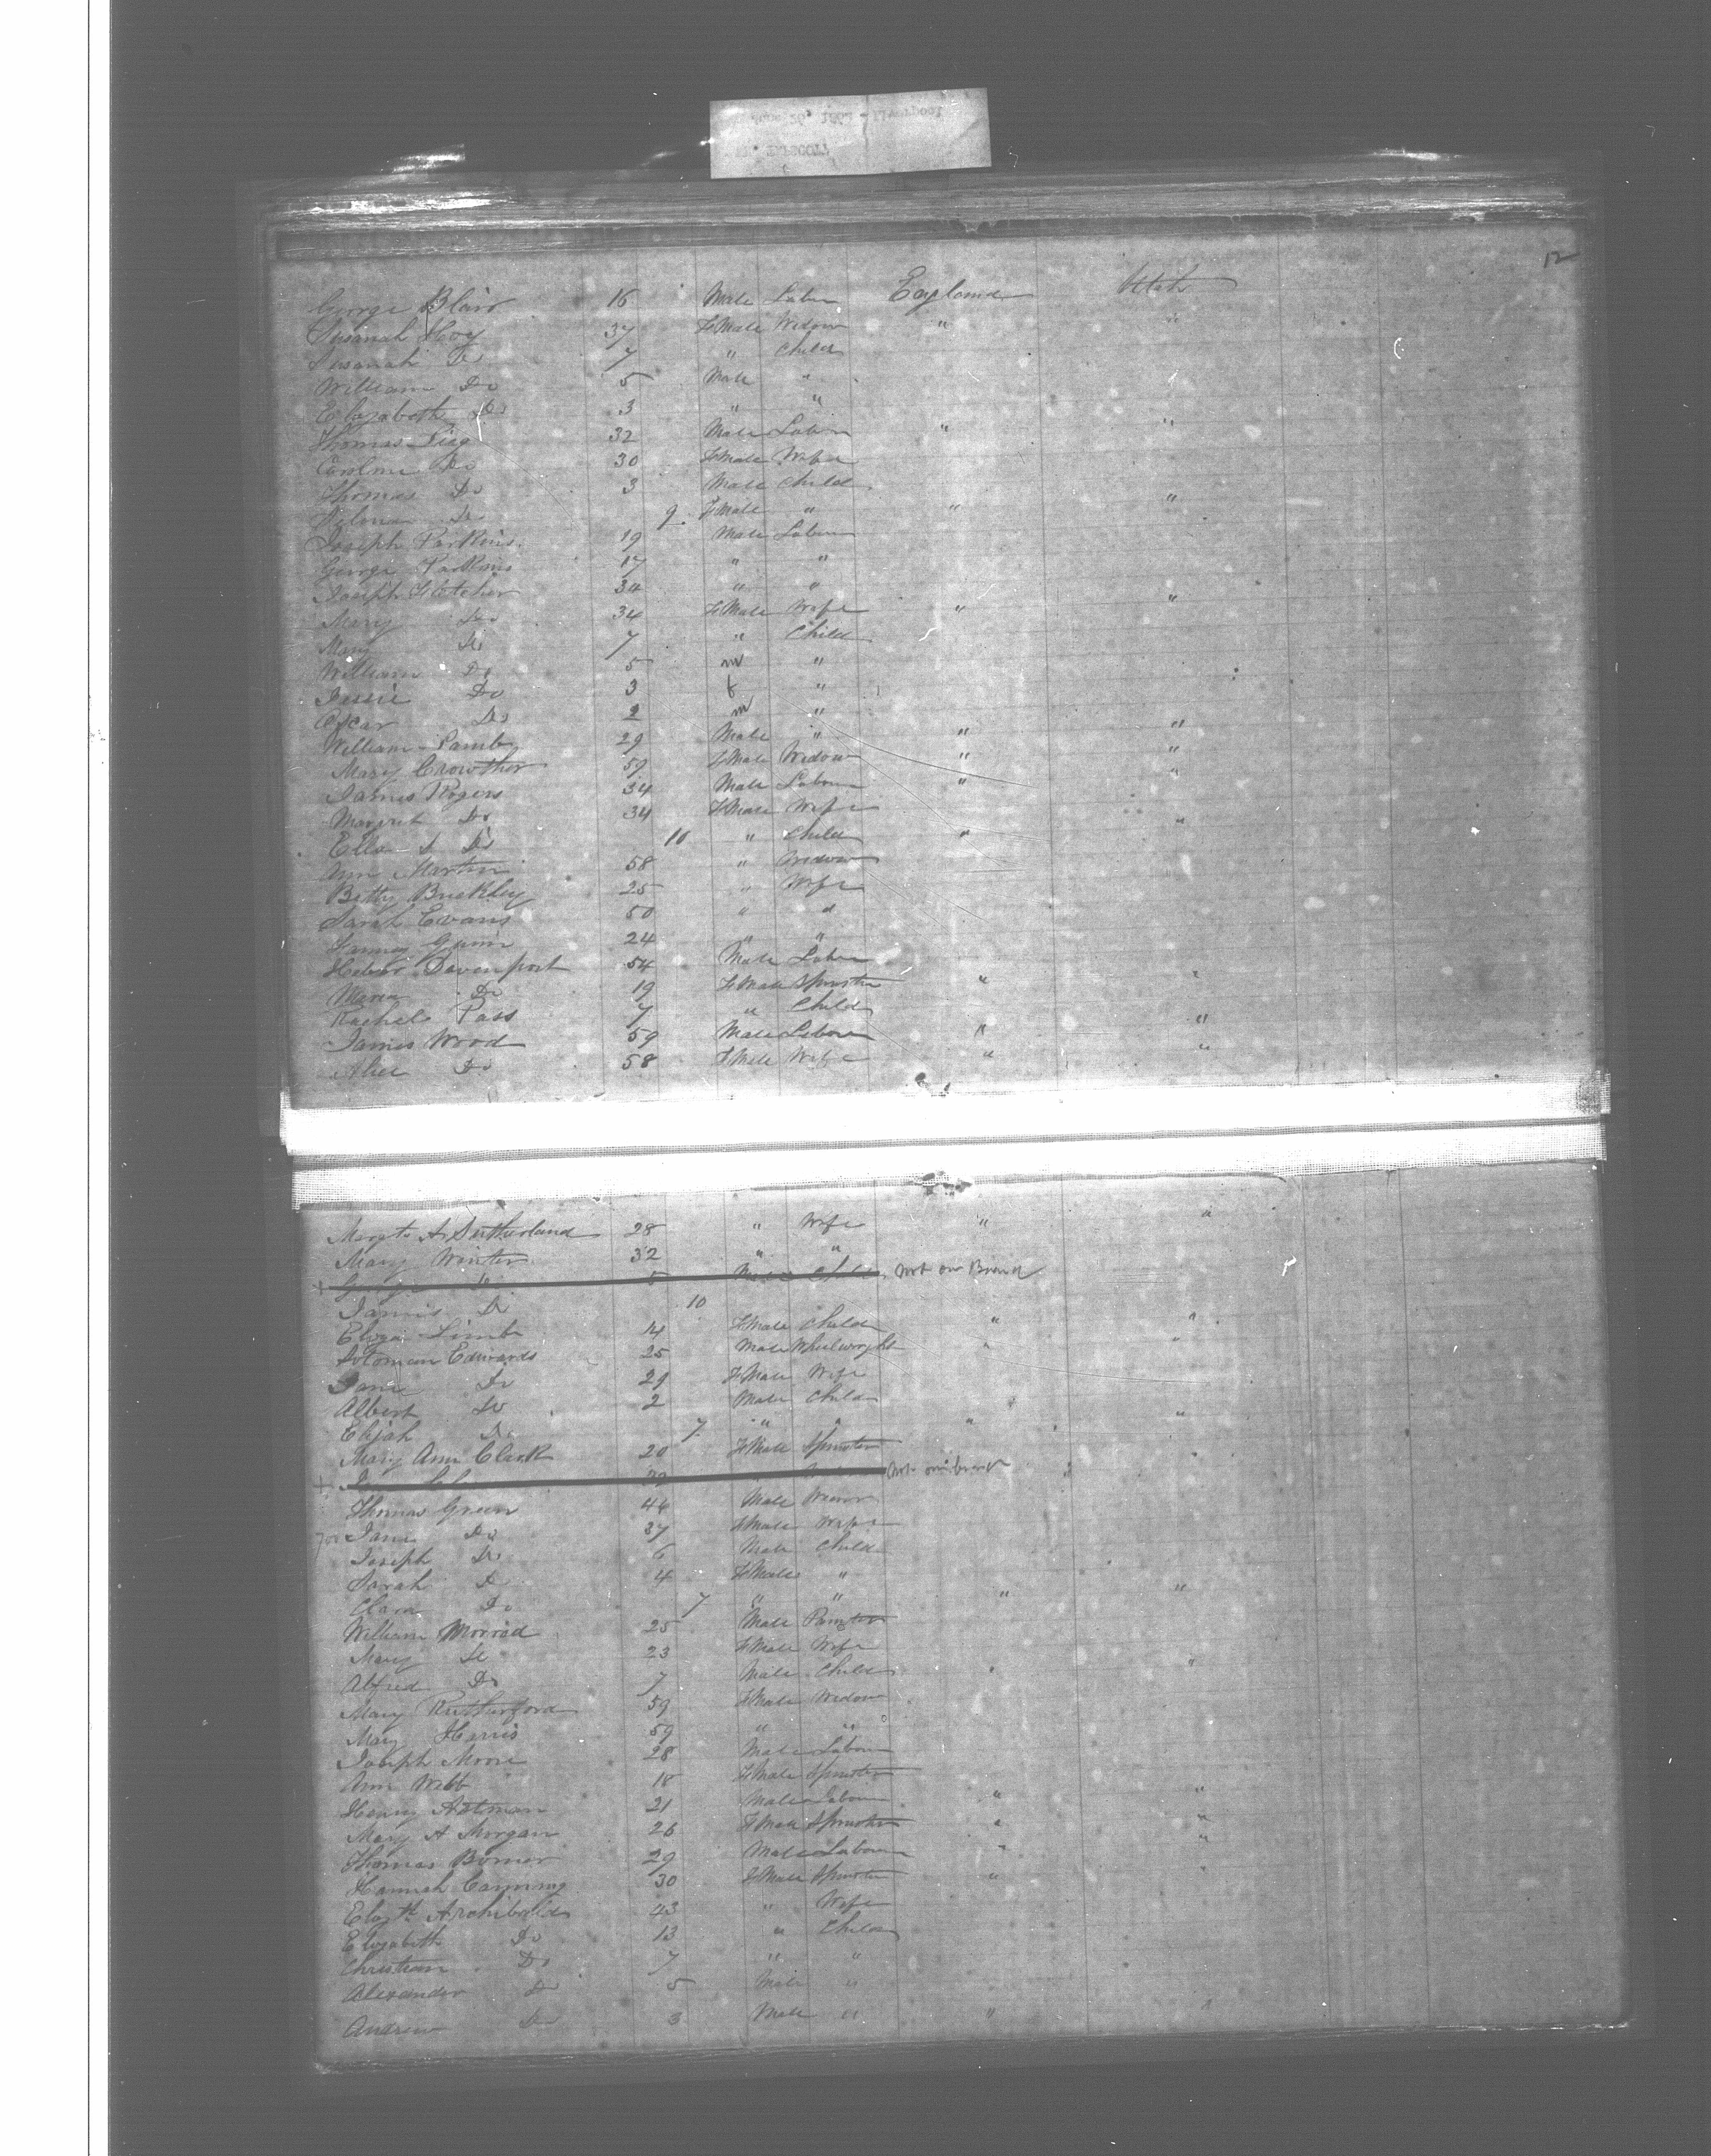 June 26, 1862 - Liverpool
WM. TAPSCOTT
12
George Blair 16 Male Labor England Utah
Susanah Hoy 37 FMale Widow " "
Susanah Do 7 " Child
William Do 5 Male "
Elizabeth Do 3 " "
Thomas 32 Male Labor " "
Caroline Do 30 FMale Wife
Thomas Do 3 Male Child
Do 9 FMale " " "
Joseph Parkins 19 Male Labour
George Parkins 17 " "
Joseph Fletcher 34 " "
Mary Do 34 FMale Wife " "
Mary Do 7 " Child
William Do 5 m "
Jessie Do 3 f "
Oscar Do 2 m "
William Lamb 29 Male " " "
Mary Crowther 59 FMale Widow " "
James Rogers 34 Male Labour " "
Margret Do 34 FMale Wife
Ellen S Do 10 " Child " "
Ann Martin 58 " Widow
Betty Buckley 25 " Wife
Sarah Evans 50 " "
Fanny Gunn 24 " "
Heber Davenport 54 Male Labor
Maria Do 19 FMale Spinster " "
Rachel Pass 7 " Child
James Wood 59 Male Labour " "
Alice Do 58 FMale Wife " "
Margt A. Sutherland 28 " Wife " "
Mary Winter 32 " "
George Do 5 Male Child Not on Board
James Do 10
Eliza Limb 14 FMale Child " "
Soloman Edwards 25 Male Wheelwright " "
Jane Do 29 FMale Wife
Albert Do 2 Male Child
Elijah Do 7 " " " "
Mary Ann Clark 20 FMale Spinster
Not on board
Thomas Green 44 Male
Jane Do 37 FMale Wife
Joseph Do 6 Male Child
Sarah Do 4 FMale "
Clara Do 7 " " " "
William Morrod 25 Male Painter
Mary Do 23 FMale Wife
Alfred Do 7 Male Child " "
Mary Rutherford 59 FMale Widow
Mary Harris 59 " "
Joseph Moore 28 Male Labour
Ann Webb 18 FMale Spinster
Henry 21 Male Labour " "
Mary A Morgan 26 FMale Spinster " "
Thomas 29 Male Labour " "
Hannah Canning 30 FMale Spinster "
Elizth Archibald 43 " Wife
Elizabeth Do 13 " Child
Christian Do 7 " "
Alexander Do 5 Male "
Andrew Do 3 Male " " "